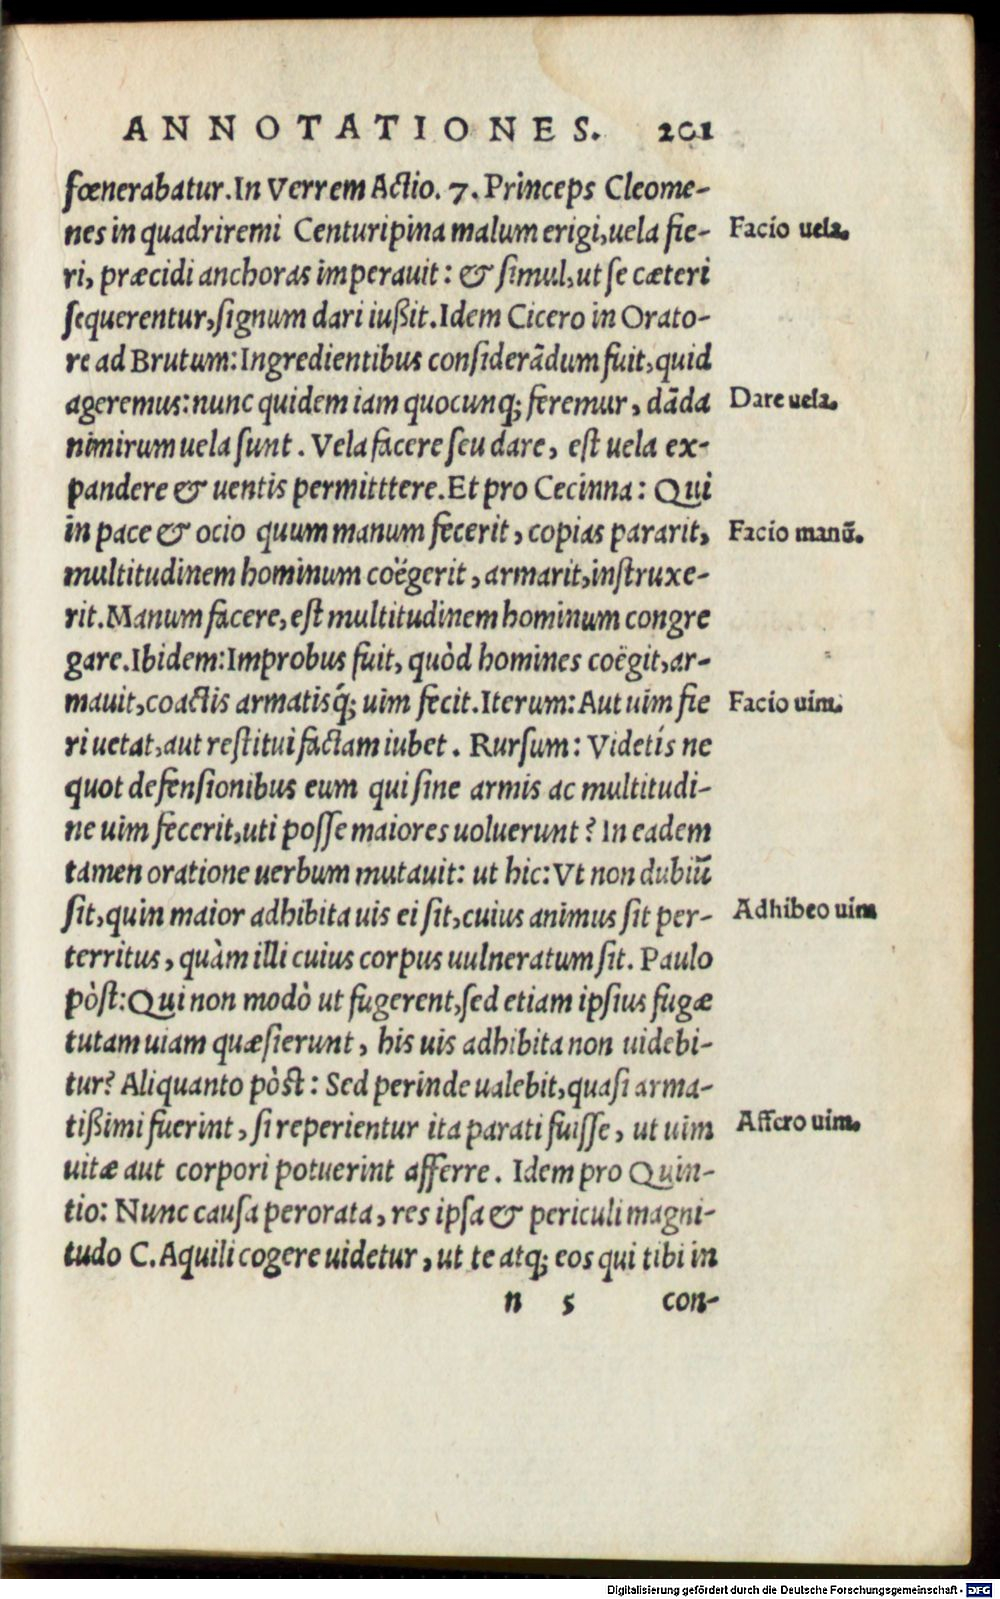 ANNOTATIONES. 201
fœnerabatur. In Verrem Actio. 7. Princeps Cleome-
nes in quadriremi Centuripina malum erigi, uela fie-
Facio uela.
ri, præcidi anchoras imperauit: & simul, ut se cæteri
sequerentur, signum dari iußit. Idem Cicero in Orato-
re ad Brutum: Ingredientibus considerādum fuit, quid
ageremus: nunc quidem iam quocunq; feremur, dāda
Dare uela.
nimirum uela sunt. Vela facere seu dare, est uela ex-
pandere & uentis permitttere. Et pro Cecinna: Qui
in pace & ocio quum manum fecerit, copias pararit,
Facio manū.
multitudinem hominum coëgerit, armarit, instruxe-
rit. Manum facere, est multitudinem hominum congre
gare. Ibidem: Improbus fuit, quòd homines coëgit, ar-
mauit, coactis armatisq́; uim fecit. Iterum: Aut uim fie
Facio uim.
ri uetat, aut restitui factam iubet. Rursum: Videtís ne
quot defensionibus eum qui sine armis ac multitudi-
ne uim fecerit, uti posse maiores uoluerunt? In eadem
tamen oratione uerbum mutauit: ut hic: Vt non dubiū
sit, quin maior adhibita uis ei sit, cuius animus sit per-
Adhibeo uim
territus, quàm illi cuius corpus uulneratum sit. Paulo
pòst: Qui non modò ut fugerent, sed etiam ipsius fugæ
tutam uiam quæsierunt, his uis adhibita non uidebi-
tur? Aliquanto pòst: Sed perinde ualebit, quasi arma-
tißimi fuerint, si reperientur ita parati fuisse, ut uim
Affero uim.
uitæ aut corpori potuerint afferre. Idem pro Quin-
tio: Nunc causa perorata, res ipsa & periculi magni-
tudo C. Aquili cogere uidetur, ut te atq; eos qui tibi in
n 5 con-
Digitalisierung gefördert durch die Deutsche Forschungsgemeinschaft - DFG